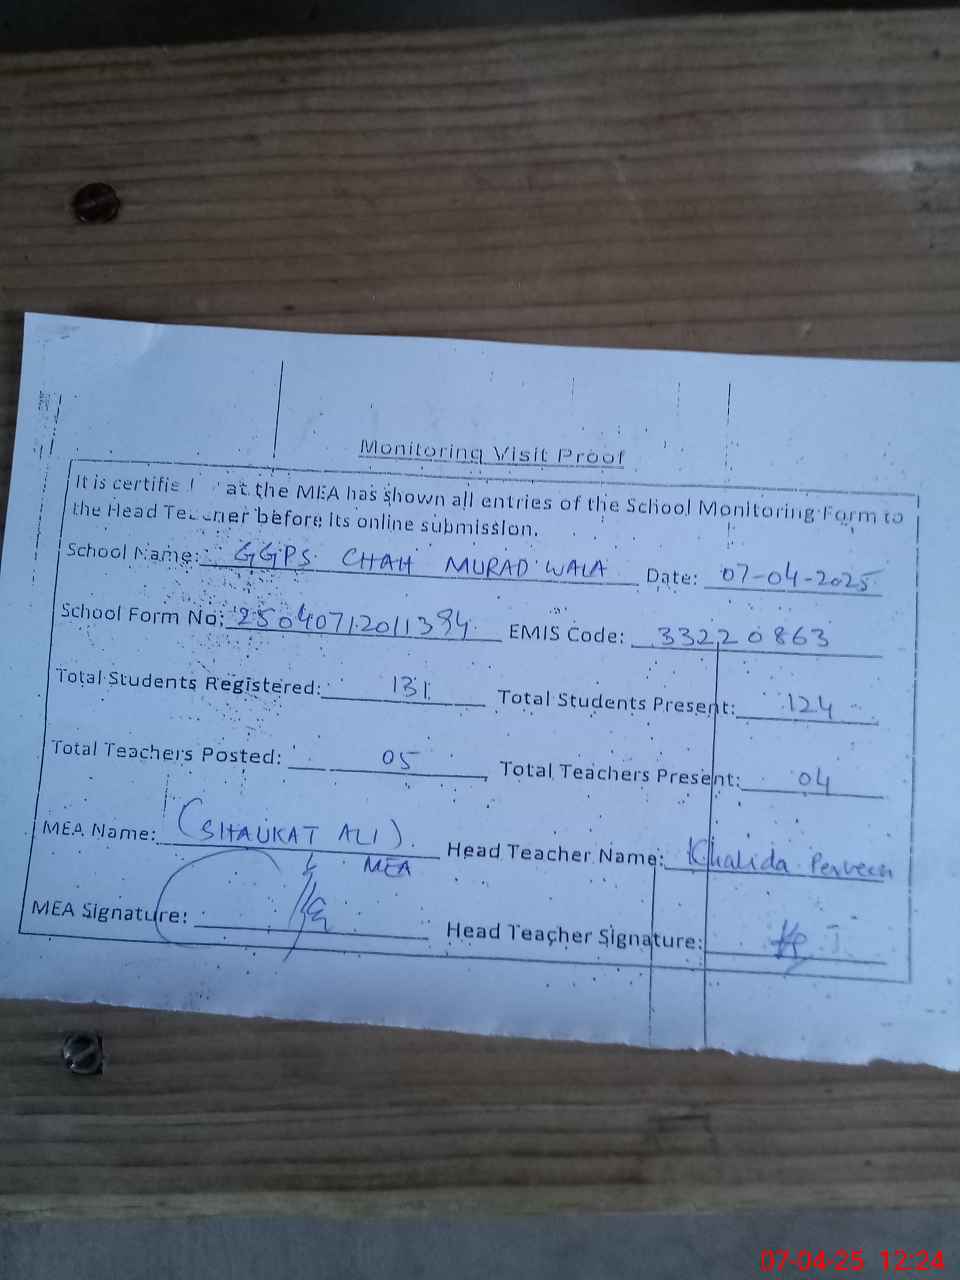 Monitoring Visit Proof
It is certifie at the MEA has shown all entries of the School Monitoring Form to
the Head Teacher before its online submission.
School Name: GGPS CHAH MURAD WALA Date: 07-04-2025
School Form No: 25040712011394 EMIS Code: 33220863
Total Students Registered: 131 Total Students Present: 124
Total Teachers Posted: 05 Total Teachers Present: 04
MEA Name: (SHAUKAT ALI) Head Teacher Name: Khalida Perveen
MEA
MEA Signature: Head Teacher Signature:
07-04-25 12:24